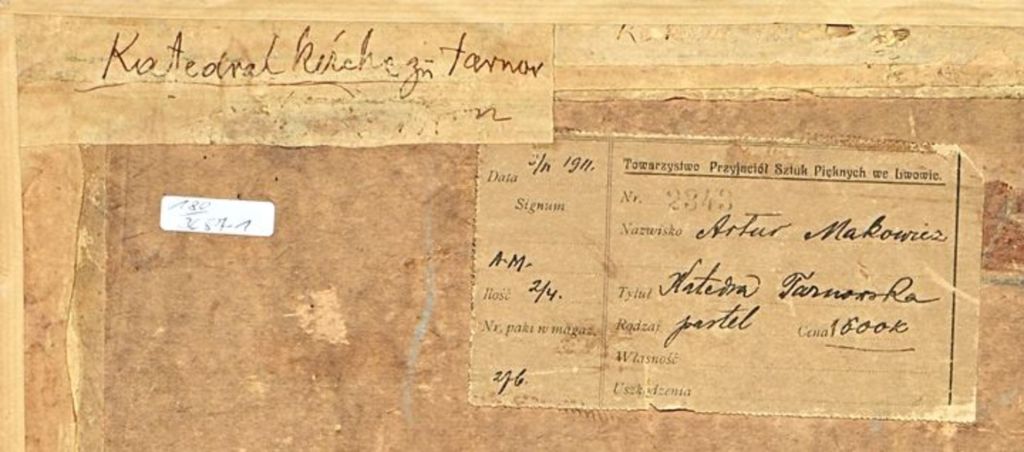 Katedral kirche zu Tarnow
Towarzystwo Przyjaciół Sztuk Pięknych we Lwowie.
Data 1911.
Signum
Nr. 2343
Nazwisko Artur Makowicz
A.M.
Ilość 2/4.
Tytuł Katedra Tarnowska
Nr. paki w magaz.
Rodzaj pastel Cena 1600K
Własność
276.
Uszkodzenia
180